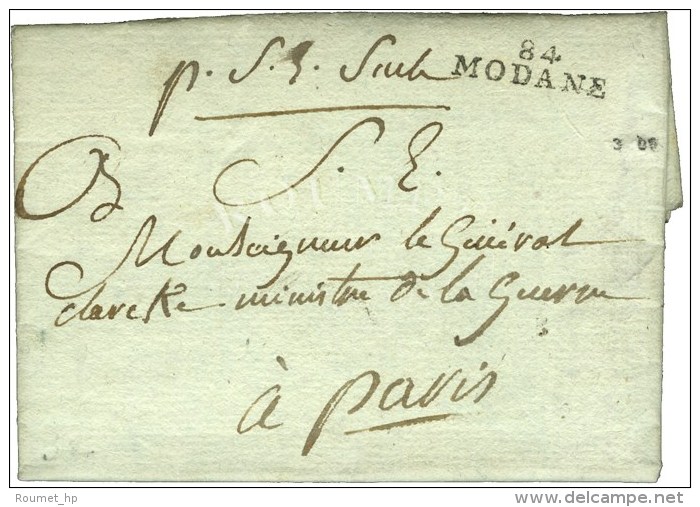 84
MODANE
p. S. E. Seule
3 DE
S. E.
Monseigneur le Général
clarcke ministre de la Guerre
à paris
Roumet_hp
delcampe.net